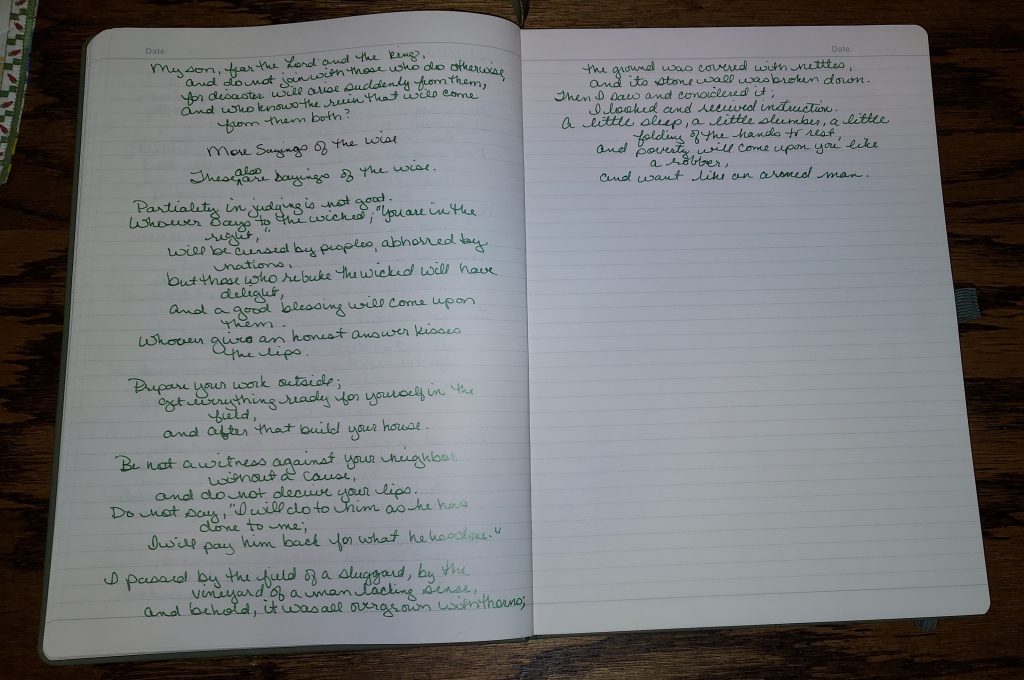 Date:
My son, fear the Lord and the king,
and do not join with those who do otherwise,
for disaster will arise suddenly from them,
and who knows the ruin that will come
from them both?
More Sayings of the Wise
These also are sayings of the wise.
Partiality in judging is not good.
Whoever says to the wicked, "You are in the
right,"
will be cursed by peoples, abhorred by
nations,
but those who rebuke the wicked will have
delight,
and a good blessing will come upon
them.
Whoever gives an honest answer kisses
the lips.
Prepare your work outside;
get everything ready for yourself in the
field,
and after that build your house.
Be not a witness against your neighbor
without a cause,
and do not deceive your lips.
Do not say, "I will do to him as he has
done to me;
I will pay him back for what he has done."
I passed by the field of a sluggard, by the
vineyard of a man lacking sense,
and behold, it was all overgrown with thorns;
Date:
the ground was covered with nettles,
and its stone wall was broken down.
Then I saw and considered it;
I looked and received instruction.
A little sleep, a little slumber, a little
folding of the hands to rest,
and poverty will come upon you like
a robber,
and want like an armed man.